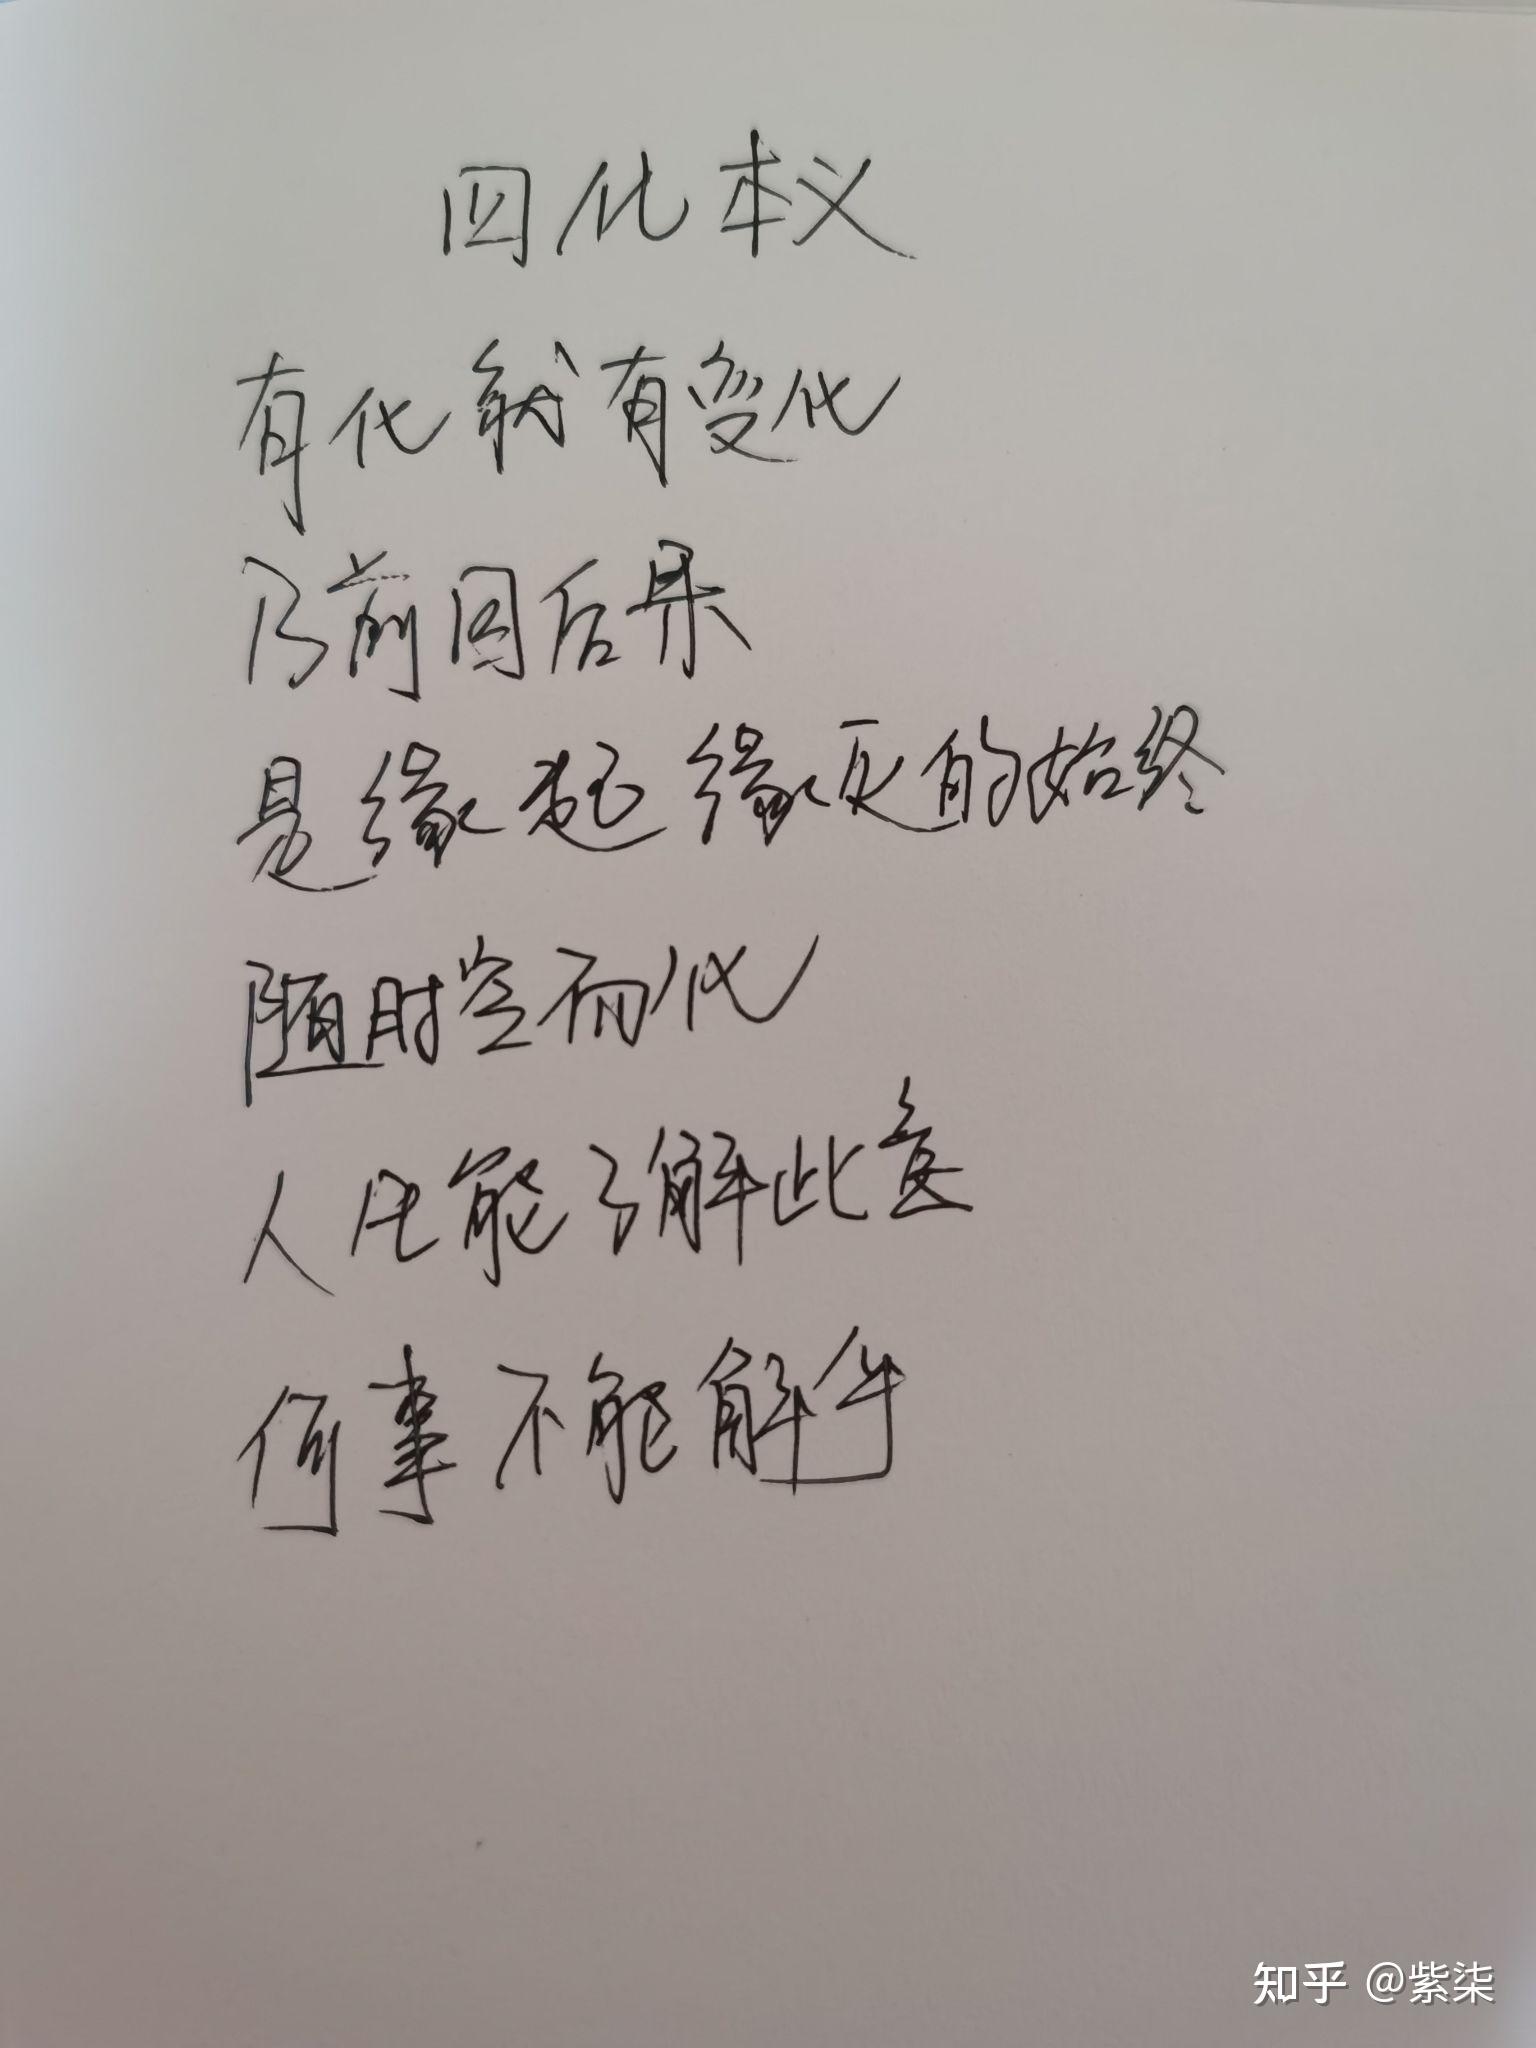 四化本义
有化就有变化
乃前因后果
是缘起缘灭的始终
随时空而化
人民能了解此意
何事不能解乎
知乎 @紫柒